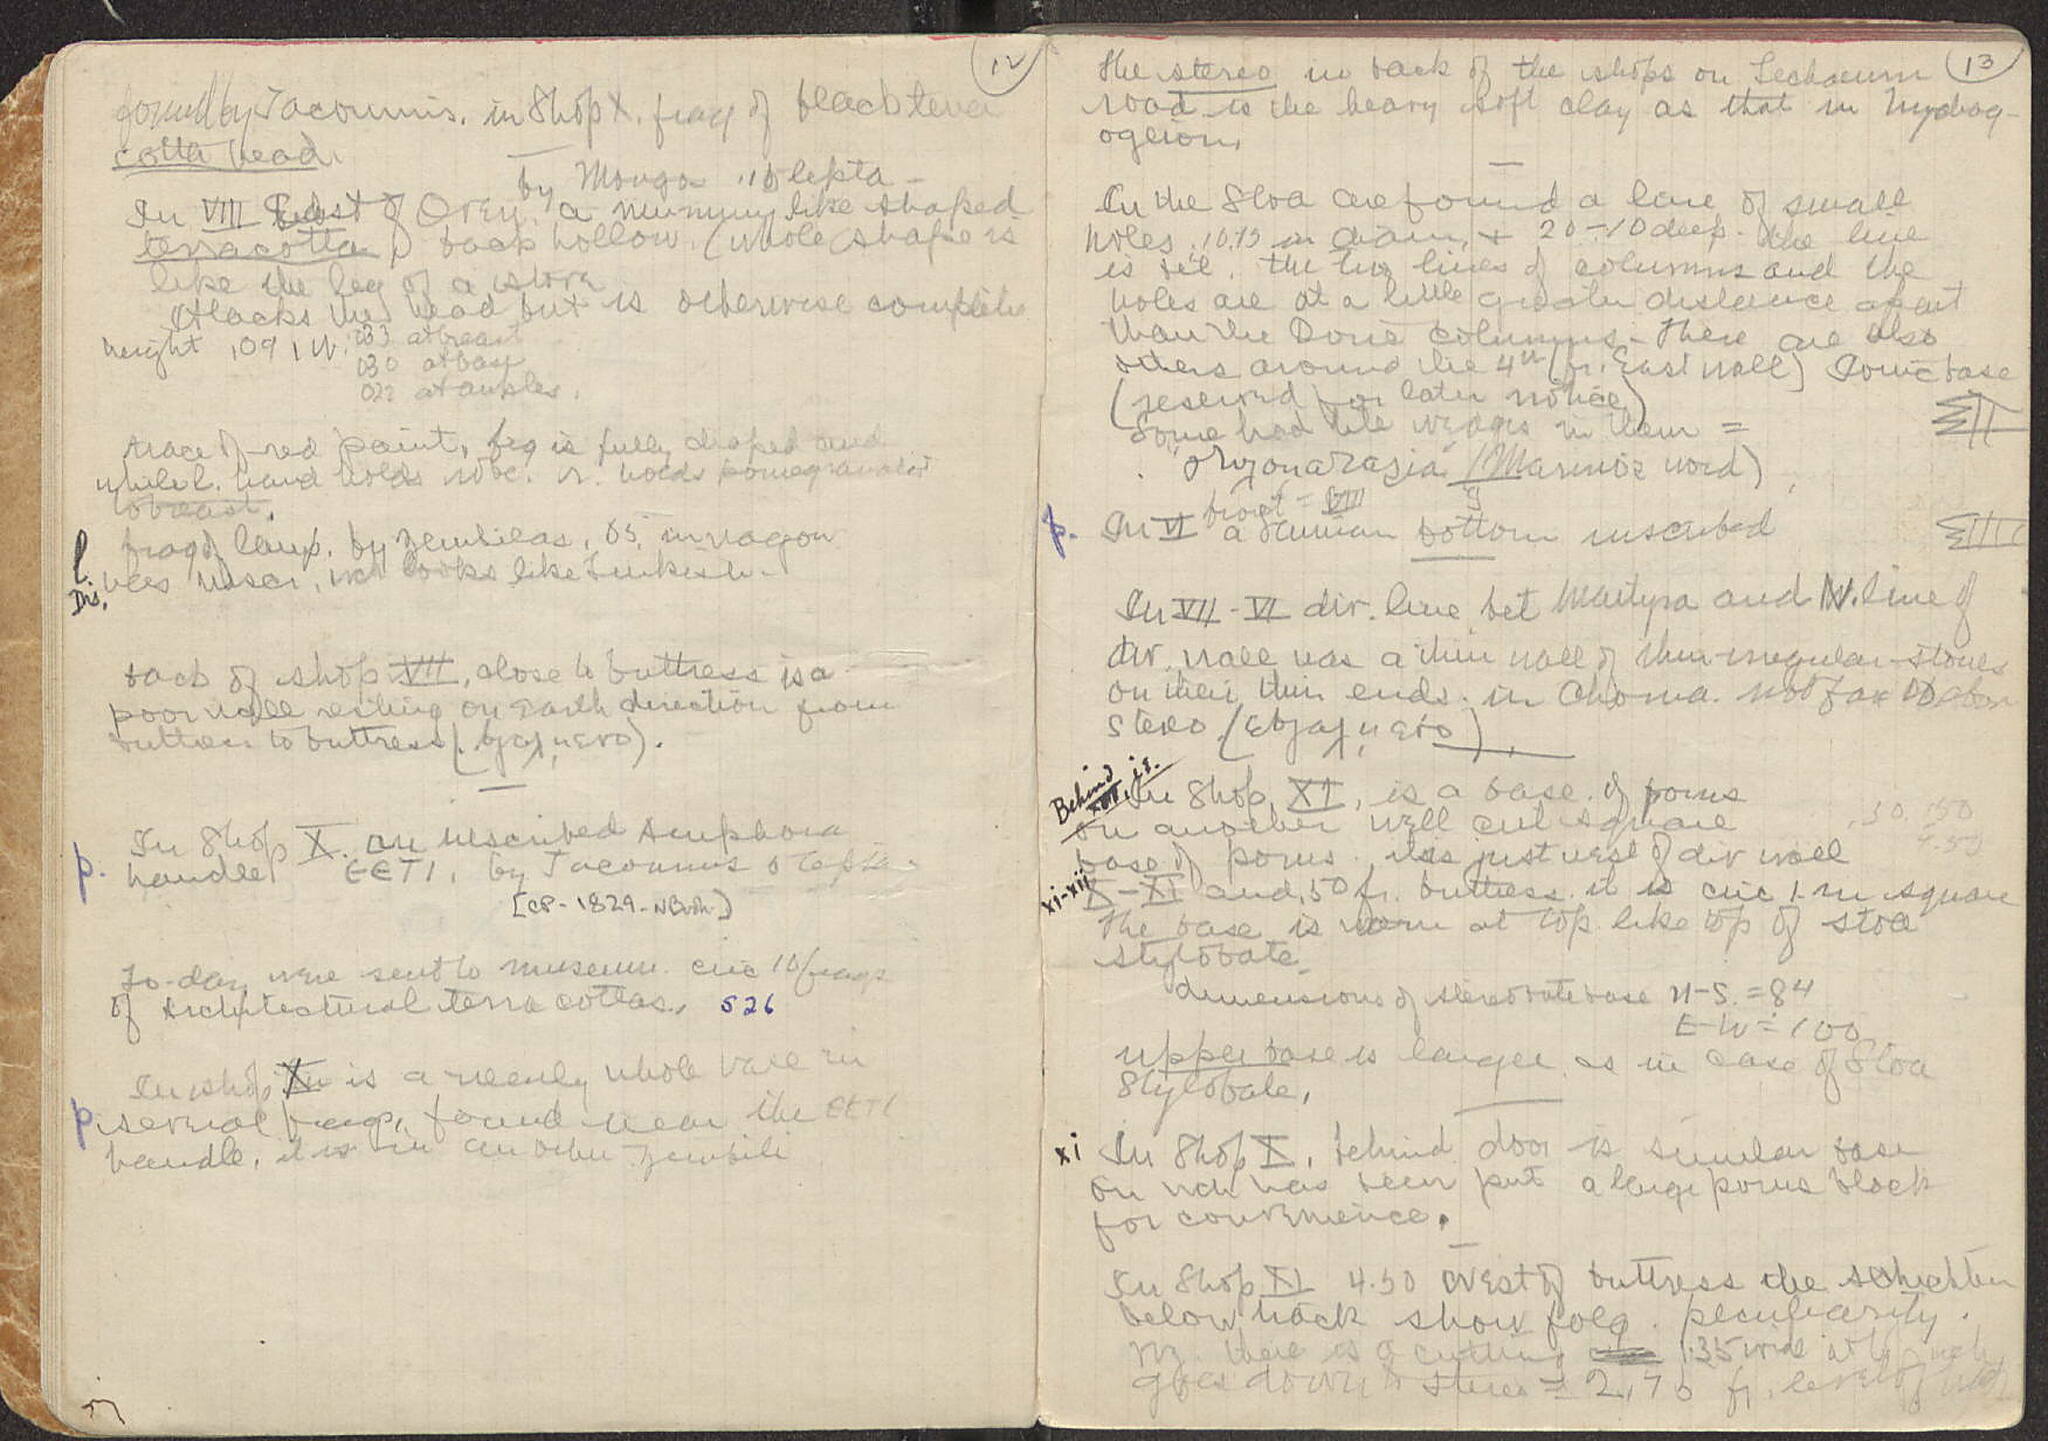 12
found by Jacoumis. in Shop X. frag of black terra
cotta head.
by Mougos .10 lepta -
In VIII East of Oven. a mummy like shaped
terracotta, back hollow. (whole shape is
like the leg of a
It lacks the head but is otherwise complete
height .091 W. .033 at breast
030 at base
022 at ankles.
trace of red paint, fig is fully draped and
while l. hand holds robe. r. holds pomegranate
to breast.
l frag of lamp. by zembilas, 05. in wagon
Dis. was inscr. wh looks like Turkish -
back of shop VII, close to buttress is a
poor wall resting on earth direction from
buttress to buttress
In Shop X. an inscribed Amphora
p. handle EETI, by Jacoumis 5 lepta -
[CP-1829-NBvh.]
To-day were sent to museum. circ 10 frags
of Architectural terra cottas. 526
In shop X is a nearly whole vase in
p. several frags, found near the EETI
handle, it is in another zembili
13
The stereo in back of the shops on Lechaeum
road is the heavy soft clay as that in Hydrag-
ogeion.
In the Stoa are found a line of small
holes .10.15 in diam, + 20-10 deep. The line
is bet. the two lines of columns and the
holes are at a little greater distance apart
than the Doric columns. There are also
others around the 4th (fr. East wall) Ionic base
(reserved for later notice)
Some had tile wedges in them =
(Marinos word)
fragt = VIII
p. In VI a Samian bottom inscribed
In VII-VI div. line bet Martyra and N. line of
div. wall was a thin wall of thin irregular stones
on their thin ends. in Choma. not far
stereo.
Behind XII, j.s.
In Shop XI, is a base of poros
on another well cut square .30 .150
4.50
base of poros. it is just west of div wall
xi-xii X-XI and .50 fr. buttress. it is circ 1. m square
The base is worn at top like top of stoa
stylobate.
dimensions of stereobate base N-S. = 84
E-W = 100
upper base is larger as in case of Stoa
Stylobate.
xi In Shop X, behind door is similar base
on wch has been put a large poros block
for convenience.
In Shop XI 4.50 West of buttress the schichten
below track show folg. peculiarity.
viz. there is a cutting 1.35 wide
goes down to stereo = 2.70 fr. level of